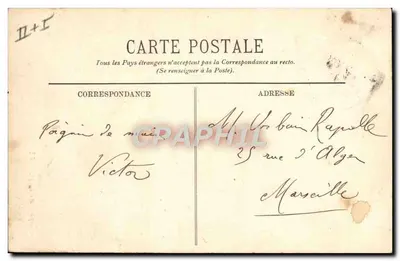 II + I
CARTE POSTALE
Tous les Pays étrangers n'acceptent pas la Correspondance au recto.
(Se renseigner à la Poste).
CORRESPONDANCE
ADRESSE
Poignée de main
Victor
M. Urbain
25 rue d'Alger
Marseille
CRAPHIL